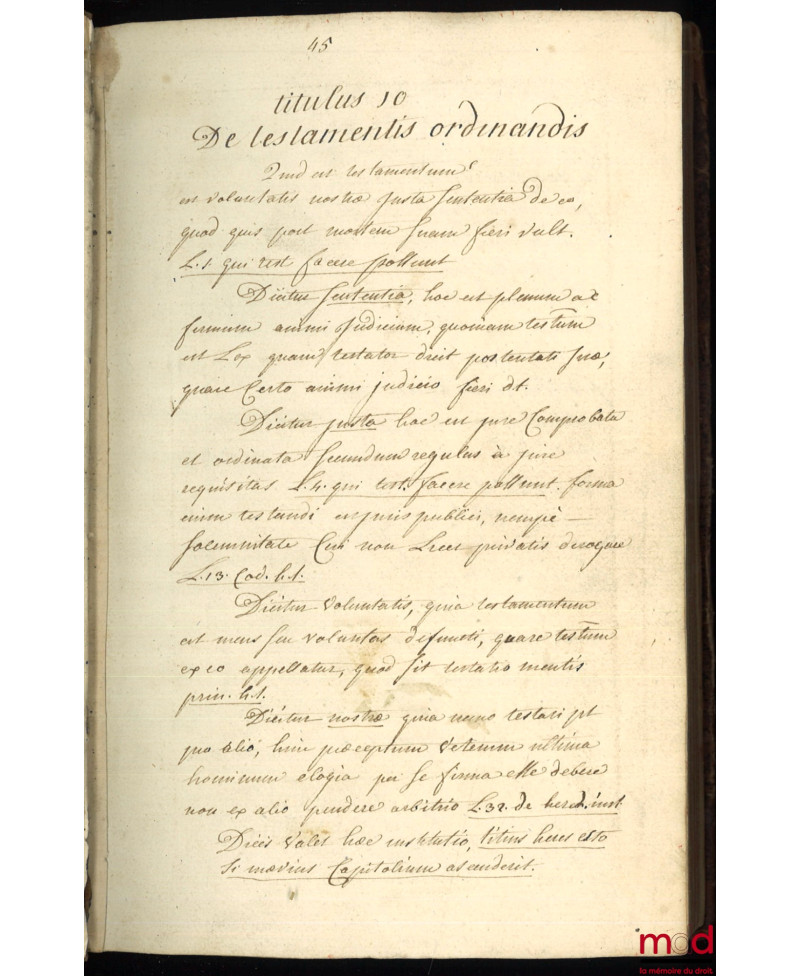 45
titulus 10
De testamentis ordinandis
Quid est testamentum?
est voluntatis nostræ justa sententia de eo,
quod quis post mortem suam fieri vult.
L. 1. qui test facere possunt
Dicitur sententia, hoc est plenum ac
firmum animi judicium, quoniam testum
est Lex quam testator dicit posteritati suæ,
quare Certo animi judicio fieri dt.
Dicitur justa hoc est jure Comprobata
et ordinata secundum regulas à jure
requisitas L. 4. qui test. facere possunt. forma
enim testandi est juris publici, nempè —
solemnitate Cui non Licet privatis derogare
L. 13. Cod. h. t.
Dicitur voluntatis, quia testamentum
est mens seu voluntas defuncti, quare testum
ex eo appellatur, quod sit testatio mentis
prin. h. t.
Dicitur nostræ quia nemo testari pt
pro alio, hinc præceptum veterum ultima
hominum elogia per se firma esse debere
non ex alio pendere arbitrio L. 32. de hered. inst
Dices valet hæc institutio, titius heres esto
si mævius Capitolium ascenderit.
mod
la mémoire du droit